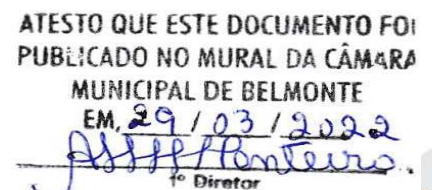 ATESTO QUE ESTE DOCUMENTO FOI
PUBLICADO NO MURAL DA CÂMARA
MUNICIPAL DE BELMONTE
EM, 29 / 03 / 2022
Monteiro
1º Diretor